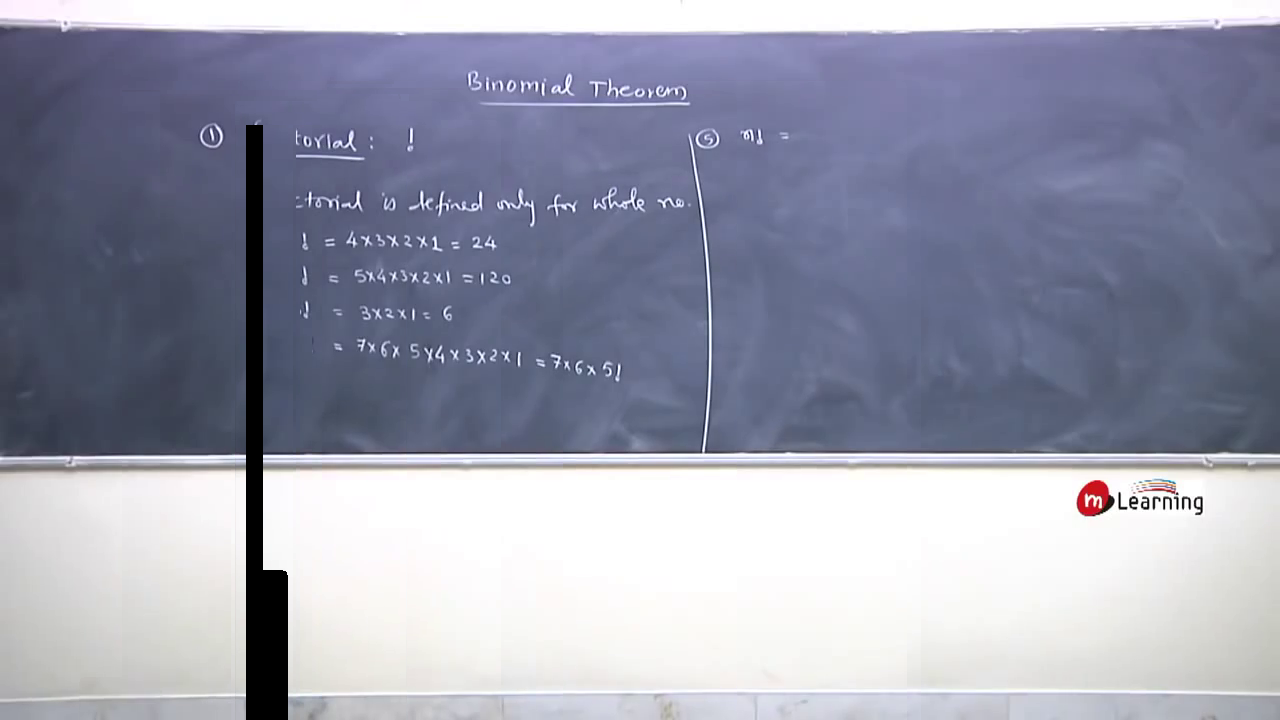 Binomial Theorem
① torial : !
torial is defined only for whole no.
! = 4×3×2×1 = 24
! = 5×4×3×2×1 = 120
! = 3×2×1 = 6
= 7×6×5×4×3×2×1 = 7×6×5!
⑤ n! =
m Learning